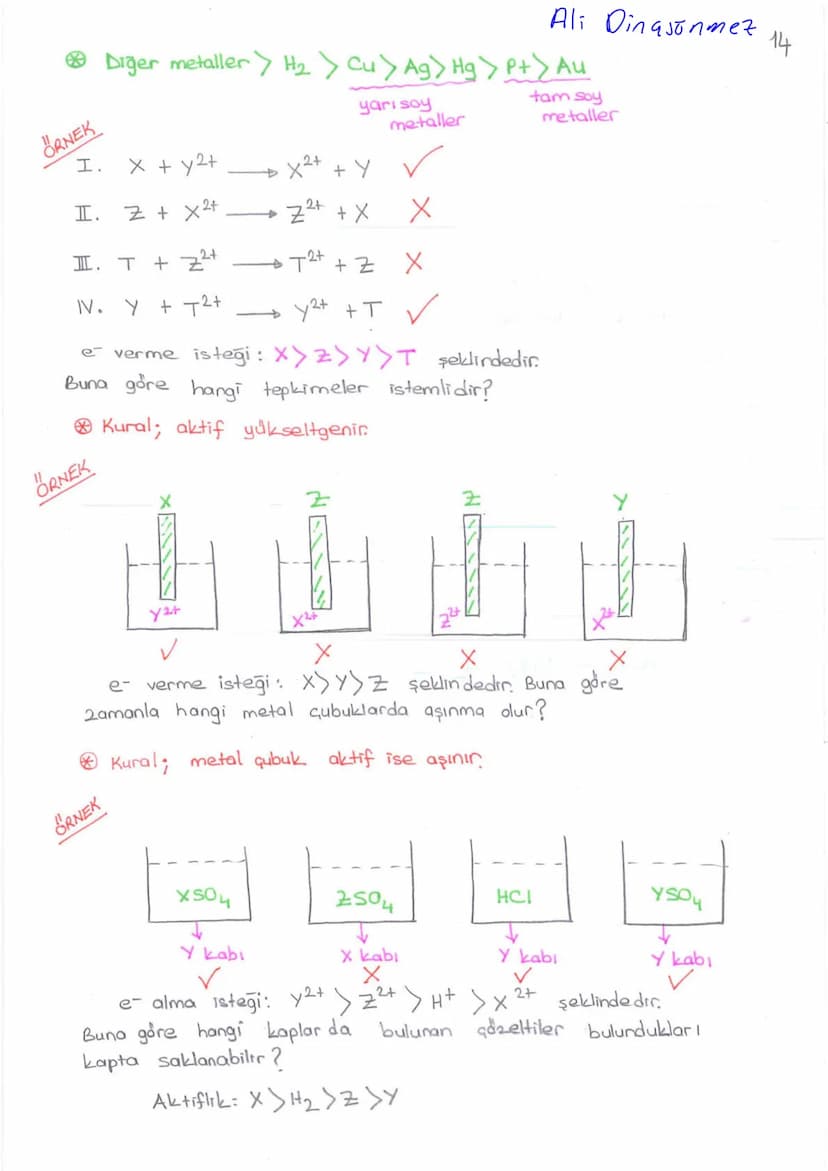 Ali Dinasönmez
14
⊛ Diğer metaller > H2 > Cu > Ag > Hg > Pt > Au
yarı soy metaller
tam soy metaller
ÖRNEK
I. X + Y2+ → X2+ + Y ✓
II. Z + X2+ → Z2+ + X X
III. T + Z2+ → T2+ + Z X
IV. Y + T2+ → Y2+ + T ✓
e- verme isteği: X > Z > Y > T şeklindedir.
Buna göre hangi tepkimeler istemlidir?
⊛ Kural; aktif yükseltgenir.
ÖRNEK
X Z Z Y
Y2+ X2+ Z2+ X2+
✓ X X X
e- verme isteği: X > Y > Z şeklindedir. Buna göre
zamanla hangi metal çubuklarda aşınma olur?
⊛ Kural; metal çubuk aktif ise aşınır.
ÖRNEK
XSO4 ZSO4 HCl YSO4
Y kabı X kabı Y kabı Y kabı
✓ X ✓ ✓
e- alma isteği: Y2+ > Z2+ > H+ > X2+ şeklindedir.
Buna göre hangi kaplarda bulunan çözeltiler bulundukları
kapta saklanabilir?
Aktiflik: X > H2 > Z > Y